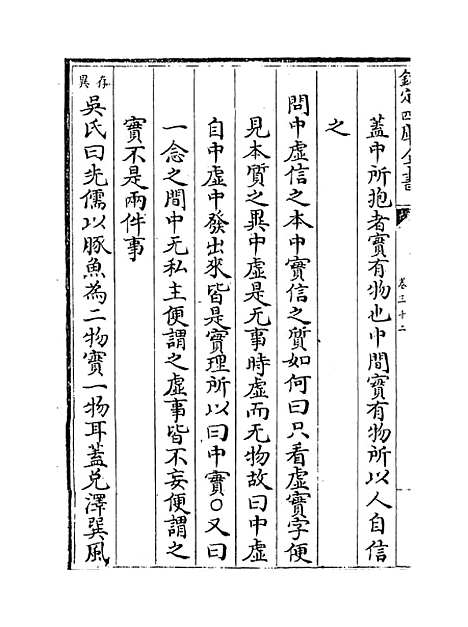 欽定四庫全書
卷三十二
蓋中所抱者實有物也中間實有物所以人自信
之
問中虛信之本中實信之質如何曰只看虛實字便
見本質之異中虛是无事時虛而无物故曰中虛
自中虛中發出來皆是實理所以曰中實○又曰
一念之間中无私主便謂之虛事皆不妄便謂之
實不是兩件事
存異
吳氏曰先儒以豚魚為二物實一物耳蓋兌澤巽風